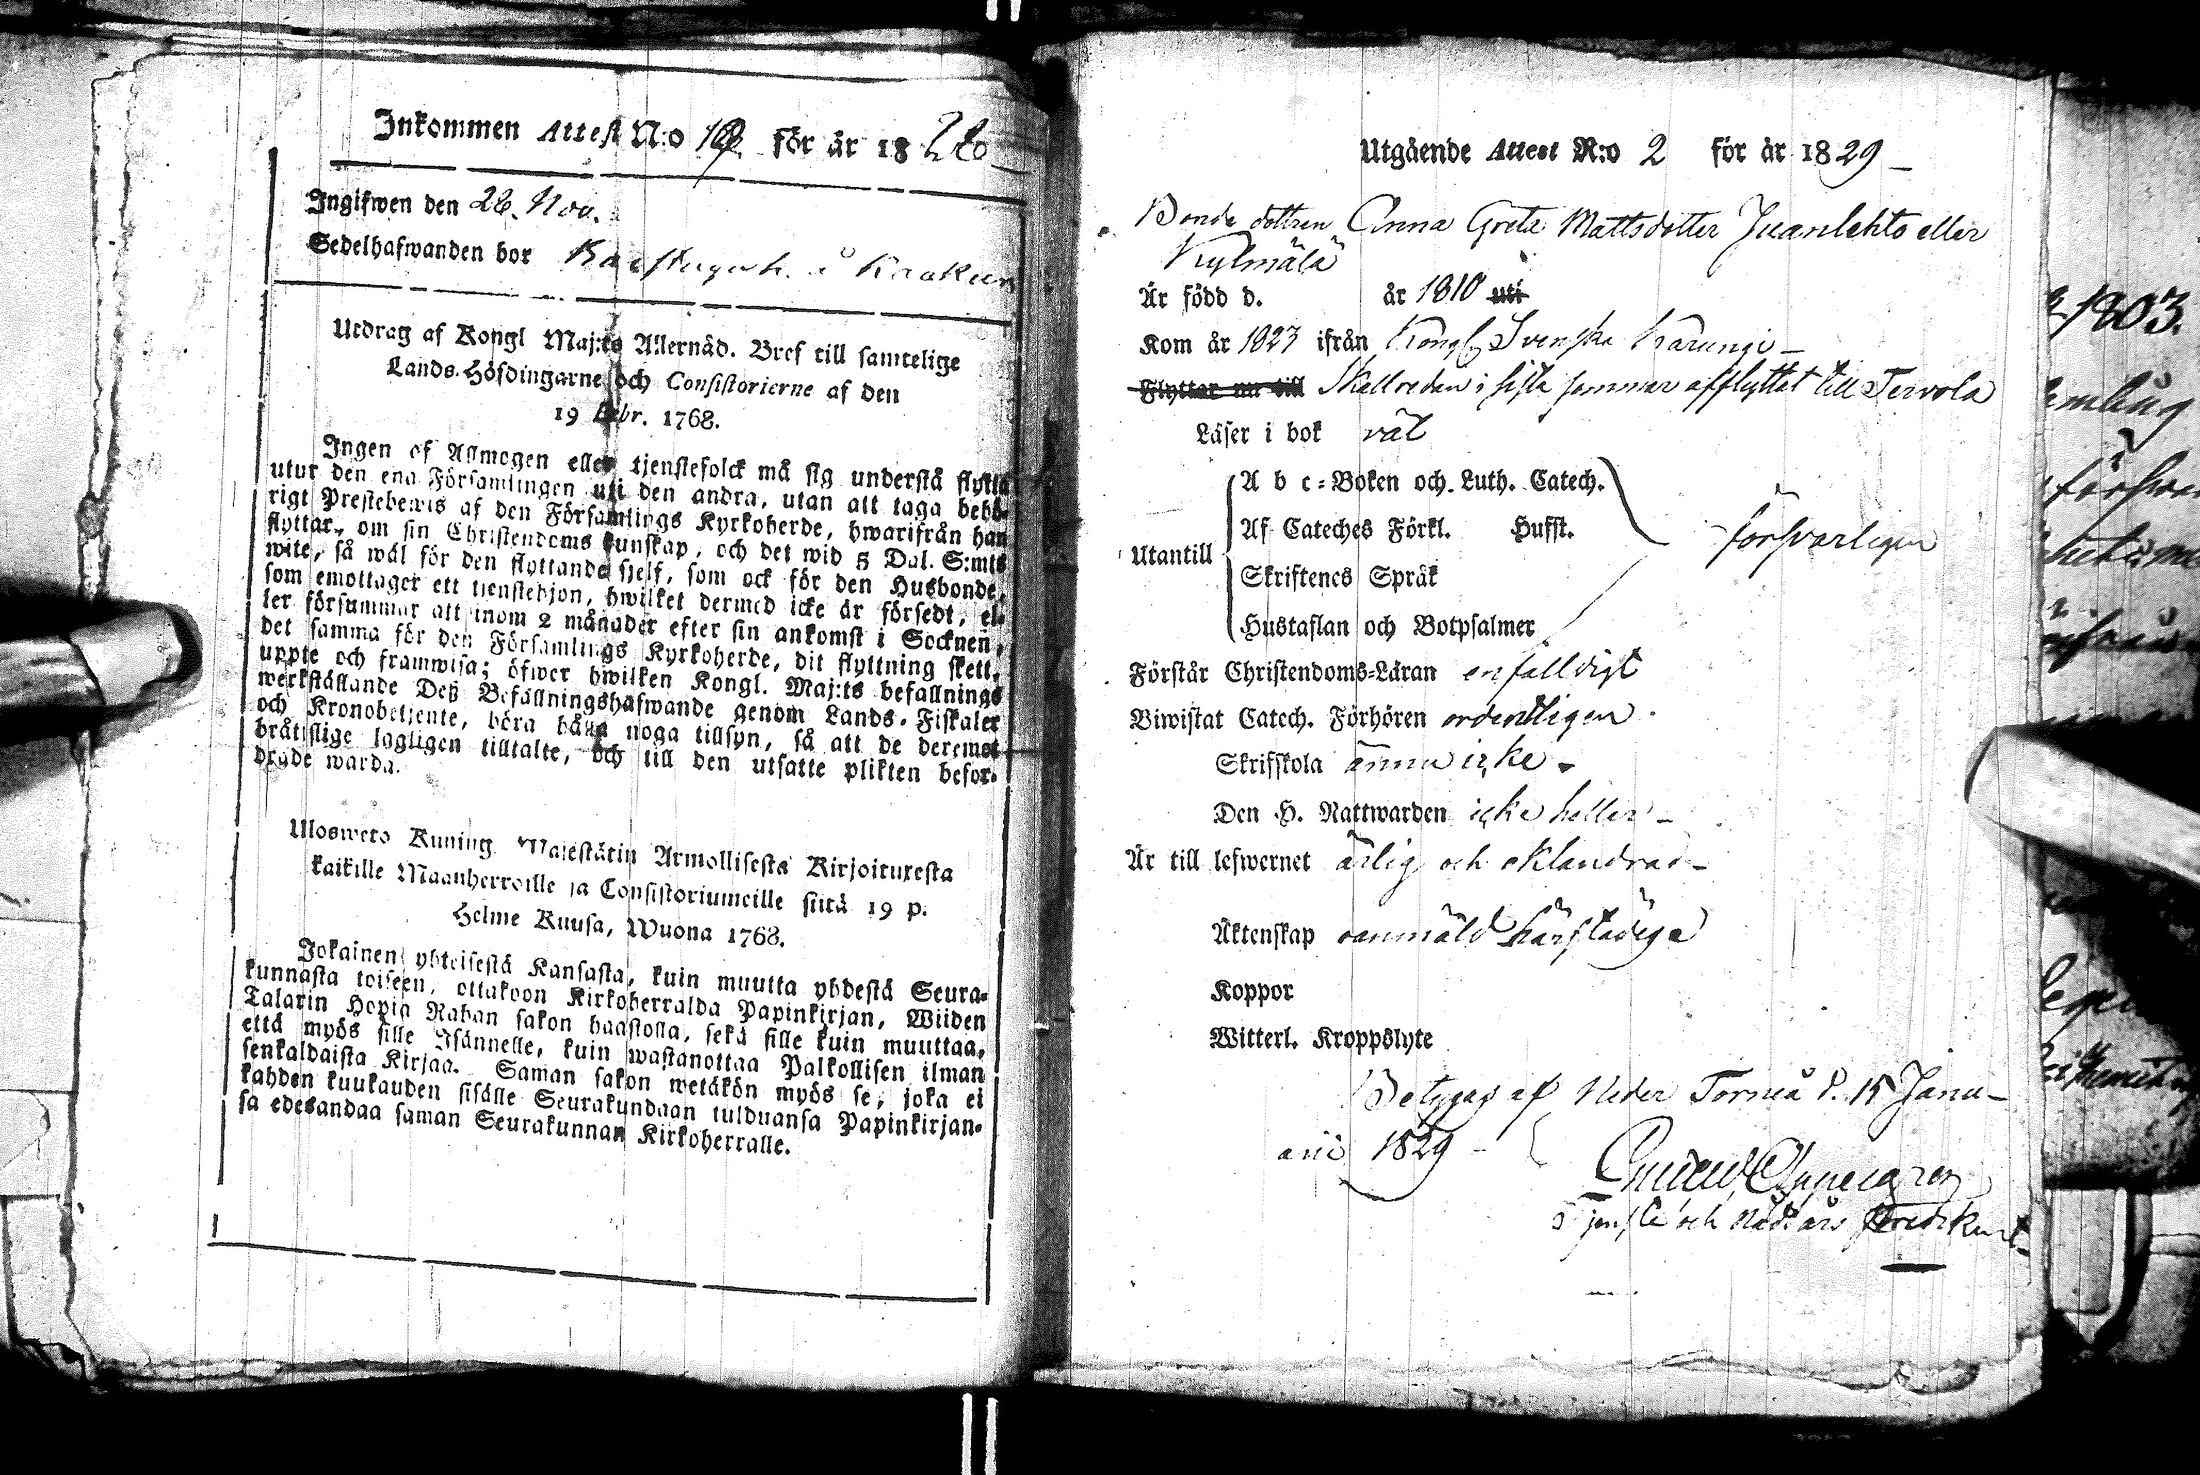 Inkommen Attest N:o för år 18
Ingifwen den 26. Nov.
Sedelhafwanden bor
Utdrag af Kongl Maj:ts Allernåd. Bref till samtelige
Lands-Höfdingarne och Consistorierne af den
19 Febr. 1768.
Ingen af Allmogen eller tjenstefolck må sig understå flytta
utur den ena Församlingen uti den andra, utan att taga behö-
rigt Prestebewis af den Församlings Kyrkoherde, hwarifrån han
flyttar, om sin Christendoms kunskap, och det wid 5 Dal. S:mts
wite, så wäl för den flyttande sjelf, som ock för den Husbonde,
som emottager ett tjenstehjon, hwilket dermed icke är försedt, el-
ler försummar att inom 2 månader efter sin ankomst i Socknen,
det samma för den Församlings Kyrkoherde, dit flyttning skett,
uppte och framwisa; öfwer hwilken Kongl. Maj:ts befallnings
werkställande Deß Befallningshafwande genom Lands-Fiskaler
och Kronobetjente, böra hålla noga tillsyn, så att de deremot
bråtislige lagligen tilltalte, och till den utsatte plikten befor-
drade warda.
Ulosweto Kuning Majestätin Armollisesta Kirjoituxesta
kaikille Maanherroille ja Consistoriumeille siitä 19 p.
Helme Kuusa, Wuona 1768.
Jokainen yhteisestä Kansasta, kuin muutta yhdestä Seura-
kunnasta toiseen, ottakoon Kirkoherralda Papinkirjan, Wiiden
Talarin Hopia Rahan sakon haastolla, sekä sille kuin muuttaa,
että myös sille Isännelle, kuin wastanottaa Palkollisen ilman
senkaldaista Kirjaa. Saman sakon wetäkön myös se, joka ei
kahden kuukauden sisälle Seurakundaan tulduansa Papinkirjan-
sa edesandaa saman Seurakunnan Kirkoherralle.
Utgående Attest N:o 2 för år 1829
Bonde dottren Anna Greta Mattsdotter Juanlehto eller
Kylmälä
Är född d. år 1810 uti
Kom år 1823 ifrån Kongl. Svenska Karungi
Flyttar nu till Skall redan i sista sommar afflyttat till Tervola
Läser i bok väl
A b c-Boken och Luth. Catech.
Af Cateches Förkl. Husst. försvarligen
Utantill
Skriftenes Språk
Hustaflan och Botpsalmer
Förstår Christendoms-Läran enfaldigt
Biwistat Catech. Förhören ordentligen
Skrifskola ännu icke
Den H. Nattwarden icke heller
Är till lefwernet ärlig och oklandrad
Äktenskap oanmäld härstädes
Koppor
Witterl. Kroppslyte
Betygas af Neder Torneå d. 15 Janu-
arii 1829
Tjenste och Nådårs Predikant
1803.